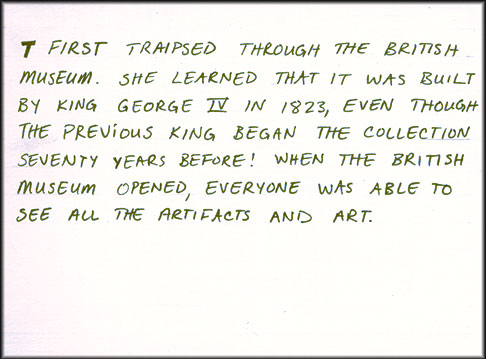 T FIRST TRAIPSED THROUGH THE BRITISH
MUSEUM. SHE LEARNED THAT IT WAS BUILT
BY KING GEORGE IV IN 1823, EVEN THOUGH
THE PREVIOUS KING BEGAN THE COLLECTION
SEVENTY YEARS BEFORE! WHEN THE BRITISH
MUSEUM OPENED, EVERYONE WAS ABLE TO
SEE ALL THE ARTIFACTS AND ART.